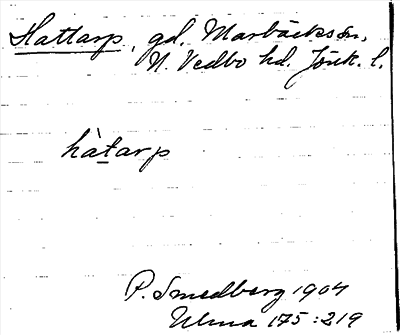 Hattarp, gd. Marbäcks sn.
N. Vedbo hd. Jönk. l.
hàtarp
P. Smedberg 1904
Ulma 175:219